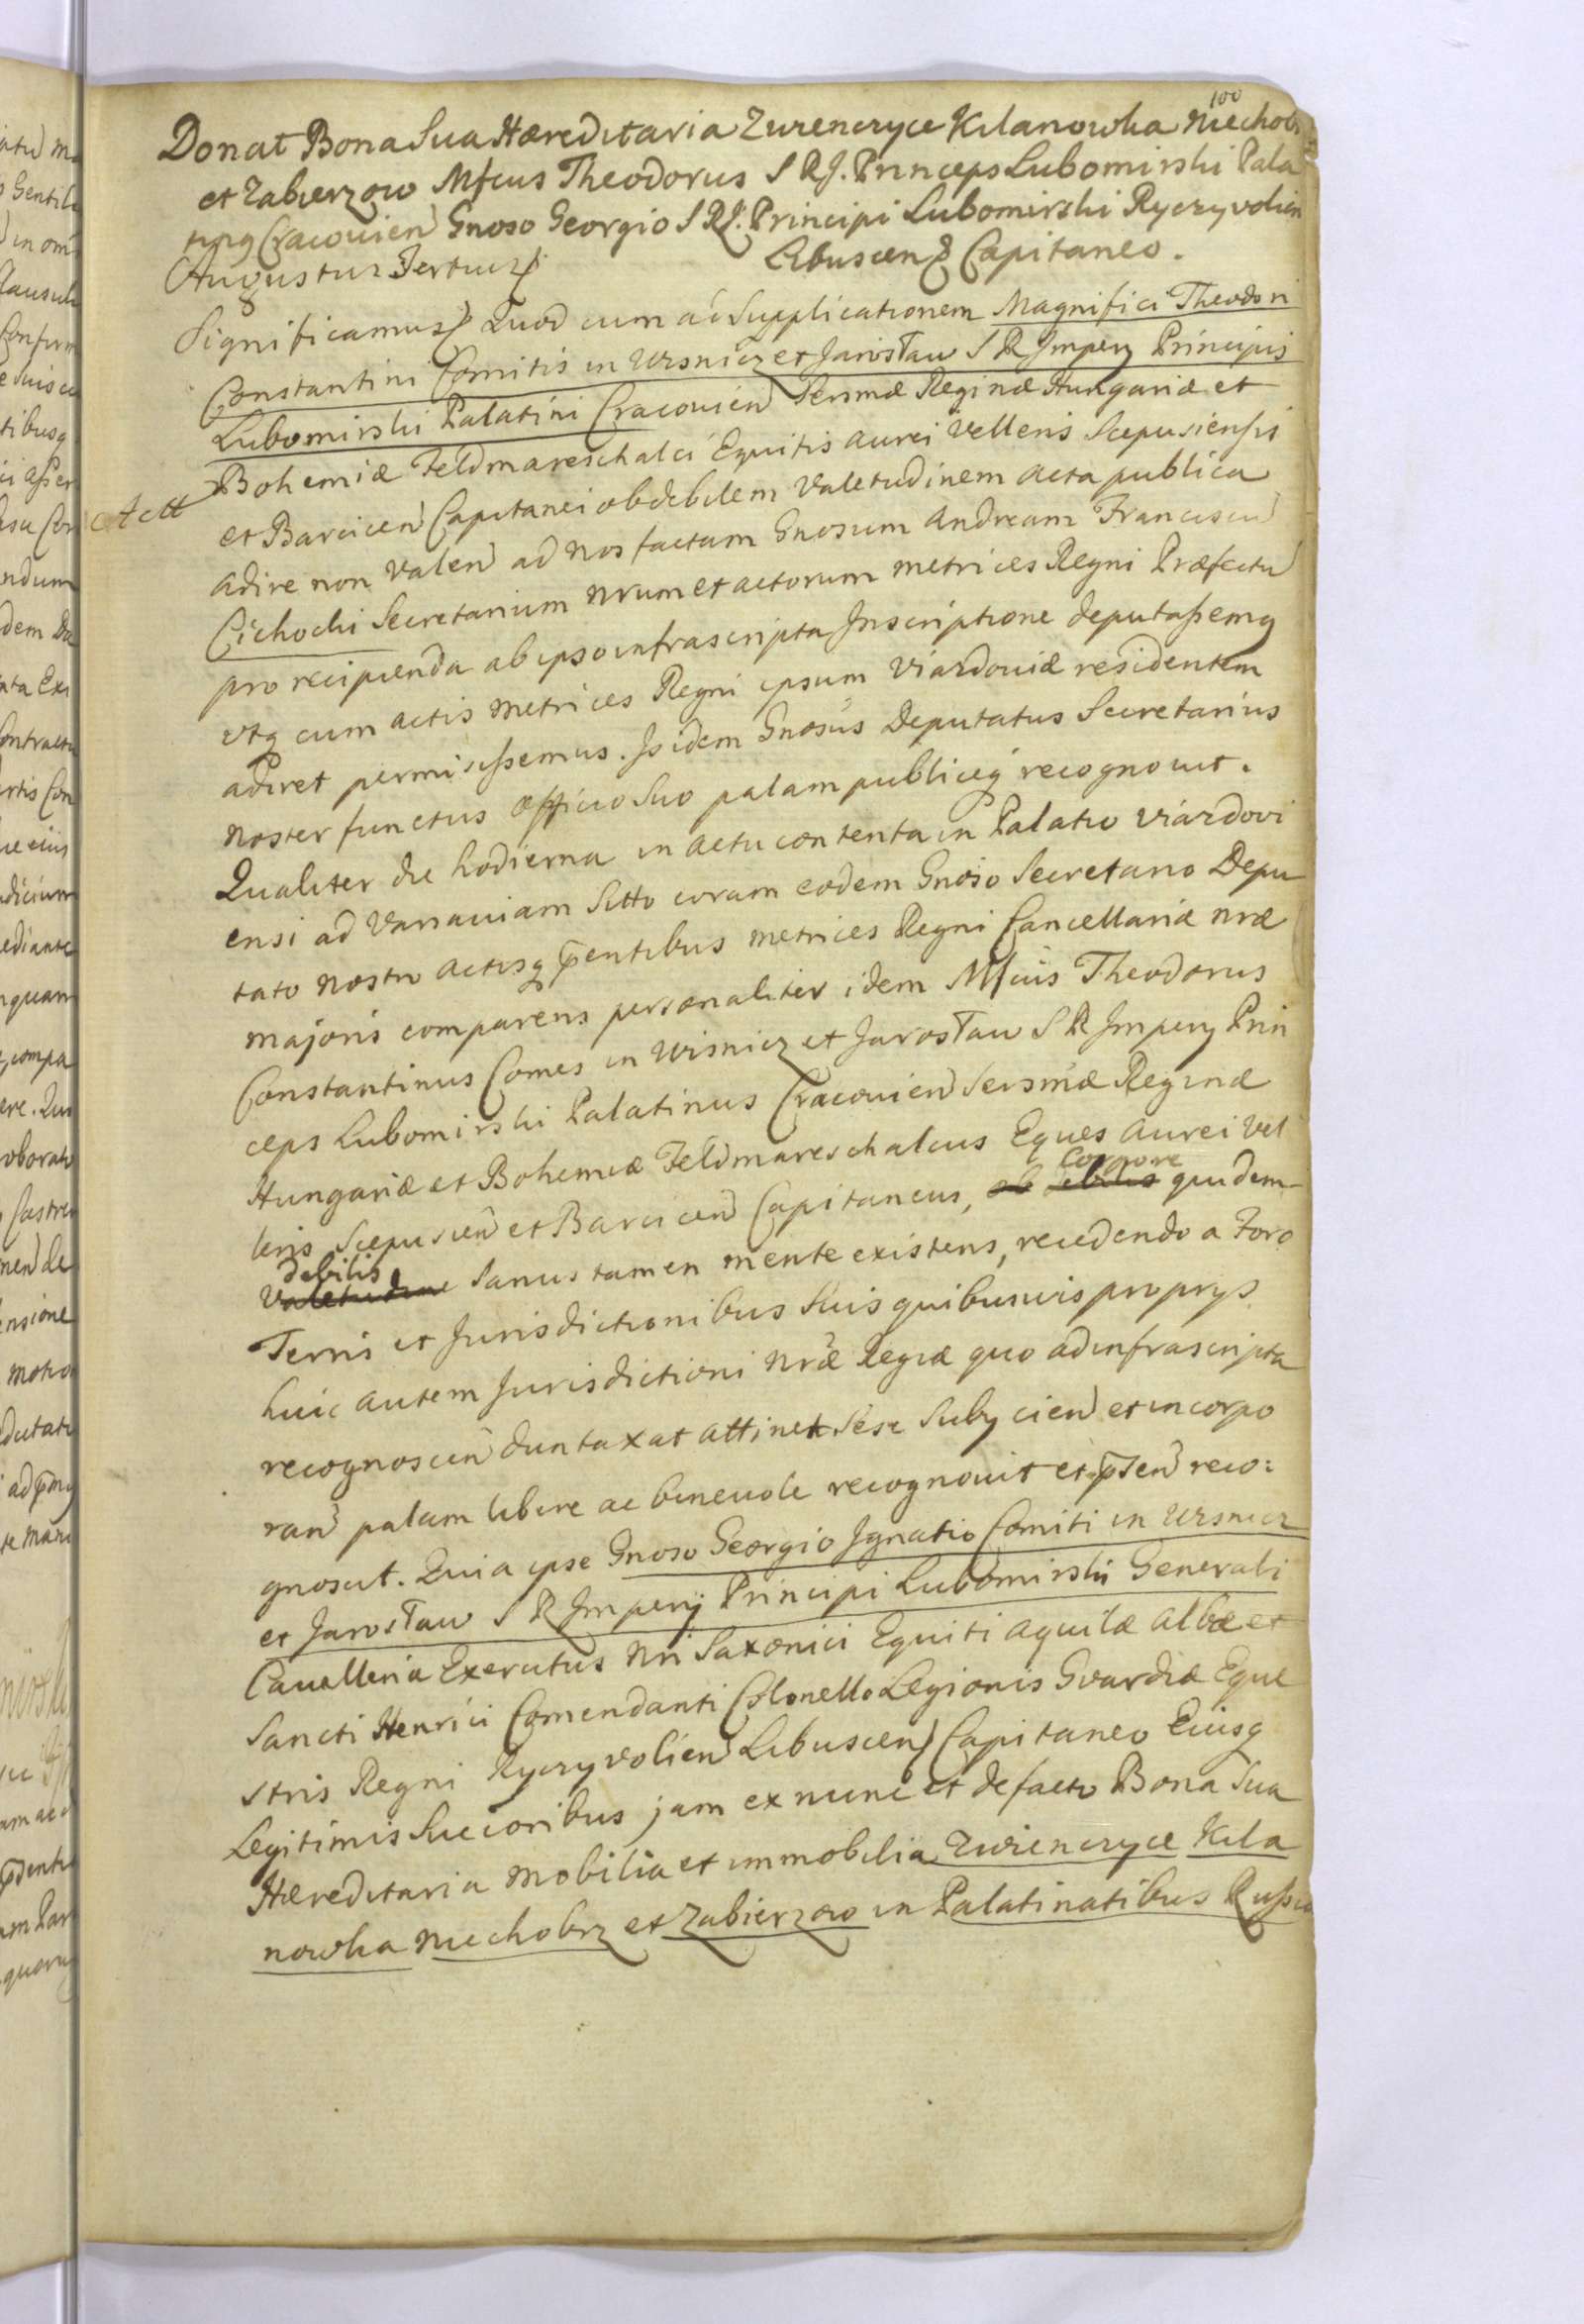 100
Donat Bona Sua Hæreditaria Zwrencryce Kilanowka Niechobr
et Zabierzow Mfcus Theodorus S R J. Princeps Lubomirski Pala
tinq Cracovien Gnoso Georgio S R J. Principi Lubomirski Ryczyvolien
Augustus Tertius Libuscen Capitaneo.
Significamus Quod cum ad Supplicationem Magnifici Theodori
Constantini Comitis in Wisnicz et Jarosław S R Imperij Principis
Lubomirski Palatini Cracovien Sersmæ Reginæ Hungariæ et
Bohemiæ Feldmareschalci Equitis Aurei Velleris Scepusiensis
et Barcicen Capitanei ob debilem Valetudinem Acta publica
adire non valen ad Nos factam Gnosum Andream Franciscu
Cichocki Secretarium Nrum et actorum Metrices Regni Præfectu
pro recipienda ab ipso infrascripta Inscriptione deputassemq
utq cum actis Metrices Regni ipsum Viardoviæ residentem
adiret permisissemus. Is idem Gnosus Deputatus Secretarius
Noster functus officio Suo palam publiceq recognovit.
Qualiter die hodierna in actu contenta in Palatio Viardovi
ensi ad Varsaviam Sitto coram eodem Gnoso Secretario Depu
tato Nostro Actisq pentibus Metrices Regni Cancellariæ Nræ
Majoris comparens personaliter idem Mfcus Theodorus
Constantinus Comes in Wisnicz et Jarosław S R Imperij Prin
ceps Lubomirski Palatinus Cracovien Sersmæ Reginæ
Hungariæ et Bohemiæ Feldmareschalcus Eques Aurei Vel
leris Scepusien et Barcicen Capitaneus, ob debilis Corpore quidem
Valetudine debilis Sanus tamen mente existens, recedendo a Foro
Terris et Jurisdictionibus Suis quibusvis proprijs
huic autem Jurisdictioni Nræ Regiæ quo ad infrascripta
recognoscen duntaxat attinet Sese Subijcien et incorpo
ran palam libere ac benevole recognovit et pnsen reco:
gnoscit. Quia ipse Gnoso Georgio Ignatio Comiti in Wisnicz
et Jarosław S R Imperij Principi Lubomirski Generali
Cavalleria Exercitus Nri Saxonici Equiti Aquilæ Albæ et
Sancti Henrici Comendanti Colonello Legionis Gvardiæ Eque
stris Regni Ryczyvolien Libuscen Capitaneo Eiusq
Legitimis Succoribus jam ex nunc et de facto Bona Sua
Hæreditaria Mobilia et immobilia Zwiencryce Kila
nowka Niechobrz et Zabierzow in Palatinatibus Russiæ